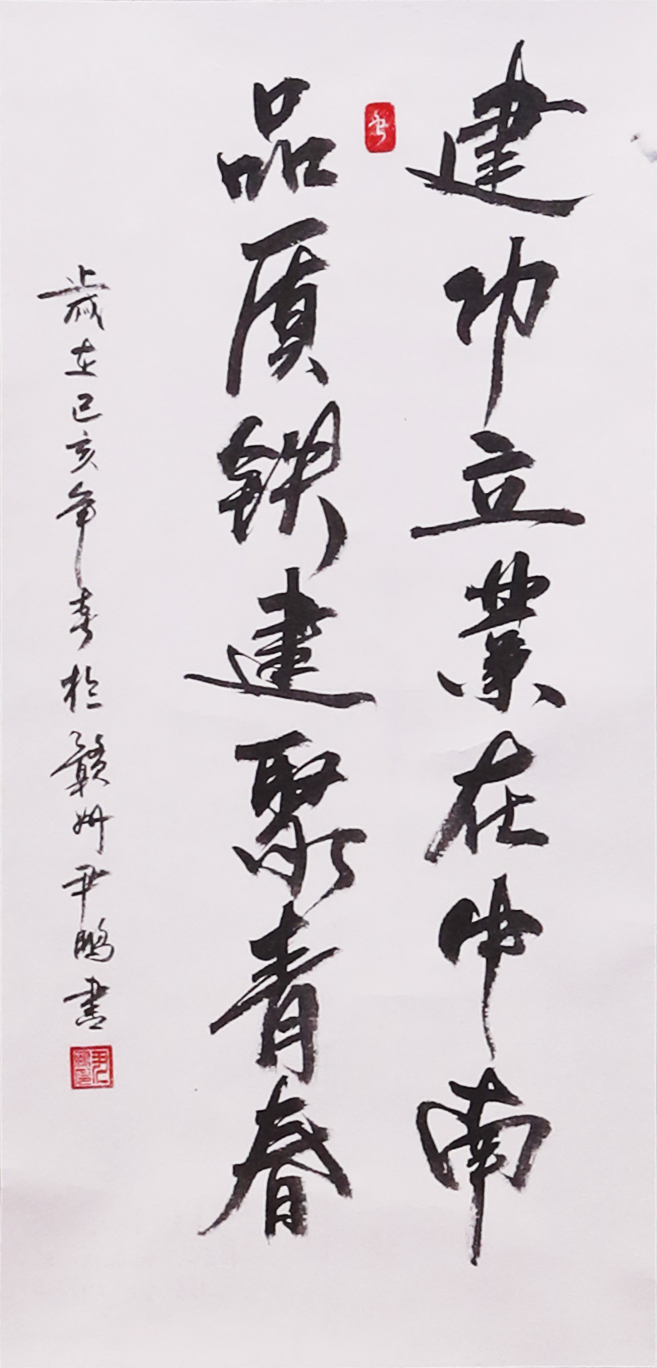 建功立業在中南
品质铁建聚青春
歲在己亥年春於贛州尹鵬書